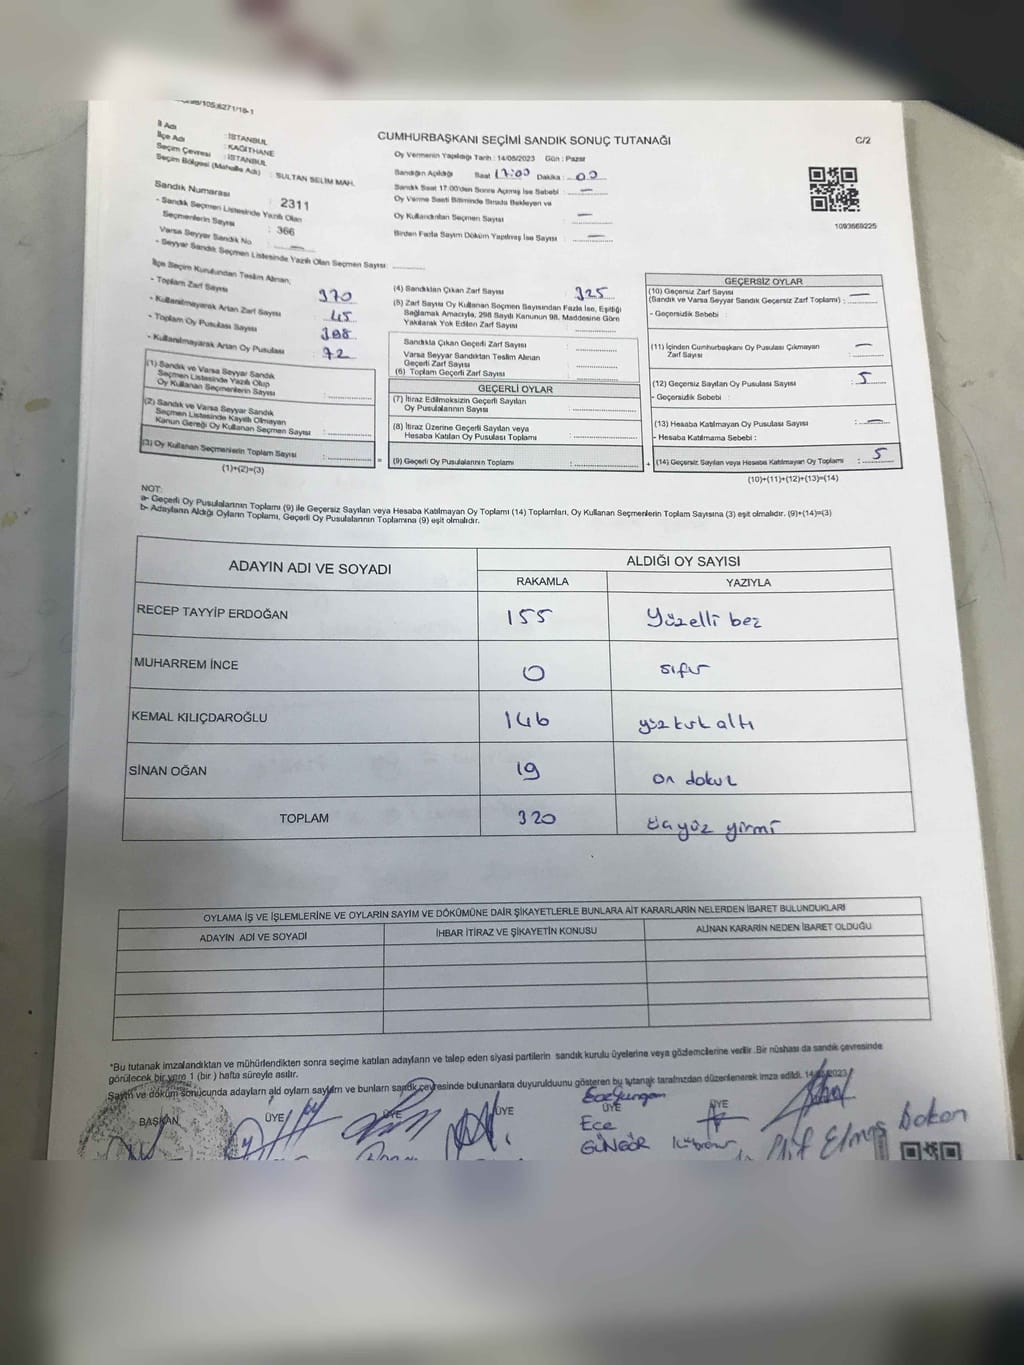 CUMHURBAŞKANI SEÇİMİ SANDIK SONUÇ TUTANAĞI
C/2
İl Adı : İSTANBUL
İlçe Adı : KAĞITHANE
Seçim Çevresi : İSTANBUL
Seçim Bölgesi (Mahalle Adı) : SULTAN SELİM MAH.
Sandık Numarası : 2311
- Sandık Seçmen Listesinde Yazılı Olan
Seçmenlerin Sayısı : 366
Varsa Seyyar Sandık No
- Seyyar Sandık Seçmen Listesinde Yazılı Olan Seçmen Sayısı:
Oy Vermenin Yapıldığı Tarih : 14/05/2023 Gün : Pazar
Sandığın Açıldığı Saat 17:00 Dakika : 00
Sandık Saat 17:00'den Sonra Açılmış İse Sebebi : —
Oy Verme Saati Bitiminde Sırada Bekleyen ve
Oy Kullandırılan Seçmen Sayısı : —
Birden Fazla Sayım Döküm Yapılmış İse Sayısı : —
1093669225
İlçe Seçim Kurulundan Teslim Alınan;
- Toplam Zarf Sayısı 370
- Kullanılmayarak Artan Zarf Sayısı 45
- Toplam Oy Pusulası Sayısı 398
- Kullanılmayarak Artan Oy Pusulası 72
(1) Sandık ve Varsa Seyyar Sandık
Seçmen Listesinde Yazılı Olup
Oy Kullanan Seçmenlerin Sayısı :
(2) Sandık ve Varsa Seyyar Sandık
Seçmen Listesinde Kayıtlı Olmayan
Kanun Gereği Oy Kullanan Seçmen Sayısı :
(3) Oy Kullanan Seçmenlerin Toplam Sayısı :
(1)+(2)=(3)
(4) Sandıktan Çıkan Zarf Sayısı 325
(5) Zarf Sayısı Oy Kullanan Seçmen Sayısından Fazla İse, Eşitliği
Sağlamak Amacıyla, 298 Sayılı Kanunun 98. Maddesine Göre
Yakılarak Yok Edilen Zarf Sayısı :
Sandıkla Çıkan Geçerli Zarf Sayısı
Varsa Seyyar Sandıktan Teslim Alınan
Geçerli Zarf Sayısı
(6) Toplam Geçerli Zarf Sayısı
GEÇERLİ OYLAR
(7) İtiraz Edilmeksizin Geçerli Sayılan
Oy Pusulalarının Sayısı :
(8) İtiraz Üzerine Geçerli Sayılan veya
Hesaba Katılan Oy Pusulası Toplamı :
= (9) Geçerli Oy Pusulalarının Toplamı :
GEÇERSİZ OYLAR
(10) Geçersiz Zarf Sayısı —
(Sandık ve Varsa Seyyar Sandık Geçersiz Zarf Toplamı) :
- Geçersizlik Sebebi :
(11) İçinden Cumhurbaşkanı Oy Pusulası Çıkmayan
Zarf Sayısı : —
(12) Geçersiz Sayılan Oy Pusulası Sayısı : 5
- Geçersizlik Sebebi :
(13) Hesaba Katılmayan Oy Pusulası Sayısı : —
- Hesaba Katılmama Sebebi :
+ (14) Geçersiz Sayılan veya Hesaba Katılmayan Oy Toplamı : 5
(10)+(11)+(12)+(13)=(14)
NOT:
a- Geçerli Oy Pusulalarının Toplamı (9) ile Geçersiz Sayılan veya Hesaba Katılmayan Oy Toplamı (14) Toplamları, Oy Kullanan Seçmenlerin Toplam Sayısına (3) eşit olmalıdır. (9)+(14)=(3)
b- Adayların Aldığı Oyların Toplamı, Geçerli Oy Pusulalarının Toplamına (9) eşit olmalıdır.
ADAYIN ADI VE SOYADI
ALDIĞI OY SAYISI
RAKAMLA YAZIYLA
RECEP TAYYİP ERDOĞAN 155 Yüzelli beş
MUHARREM İNCE 0 sıfır
KEMAL KILIÇDAROĞLU 146 yüz kırk altı
SİNAN OĞAN 19 on dokuz
TOPLAM 320 üçyüz yirmi
OYLAMA İŞ VE İŞLEMLERİNE VE OYLARIN SAYIM VE DÖKÜMÜNE DAİR ŞİKAYETLERLE BUNLARA AİT KARARLARIN NELERDEN İBARET BULUNDUKLARI
ADAYIN ADI VE SOYADI İHBAR İTİRAZ VE ŞİKAYETİN KONUSU ALINAN KARARIN NEDEN İBARET OLDUĞU
*Bu tutanak imzalandıktan ve mühürlendikten sonra seçime katılan adayların ve talep eden siyasi partilerin sandık kurulu üyelerine veya gözlemcilerine verilir .Bir nüshası da sandık çevresinde
görülecek bir yere 1 (bir ) hafta süreyle asılır.
BAŞKAN ÜYE ÜYE ÜYE ÜYE ÜYE
Ece
GÜNGÖR